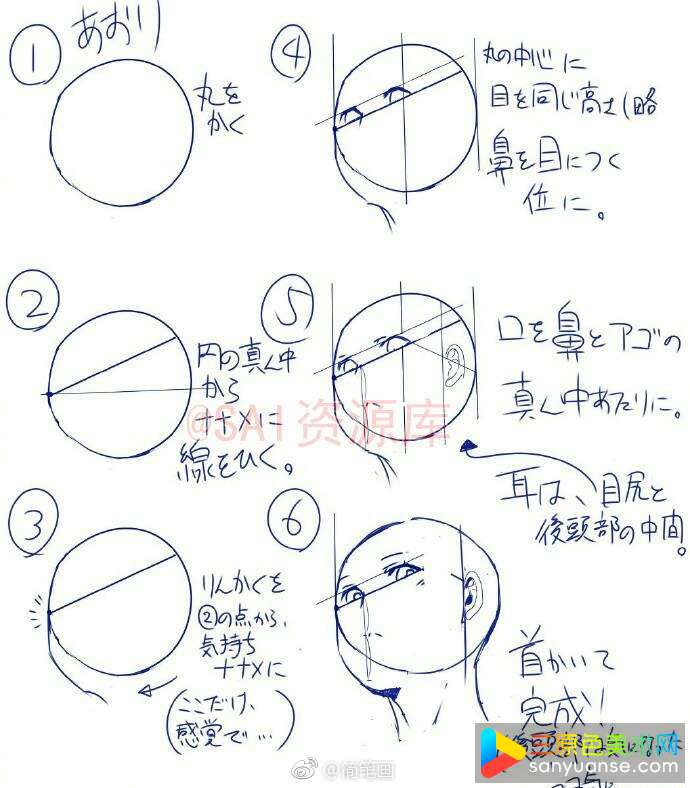 あおり
①
丸を
かく
②
円の真ん中
から
ナナメに
線をひく。
③
りんかくを
②の点から、
気持ち
ナナメに
(ここだけ、
感覚で…)
④
丸の中心に
目を同じ高さ
鼻を目につく
位に。
⑤
口を鼻とアゴの
真ん中あたりに。
耳は、目尻と
後頭部の中間。
⑥
首かいて
完成!
後頭
@SAI资源库
@简笔画
三原色美术网
sanyuanse.com